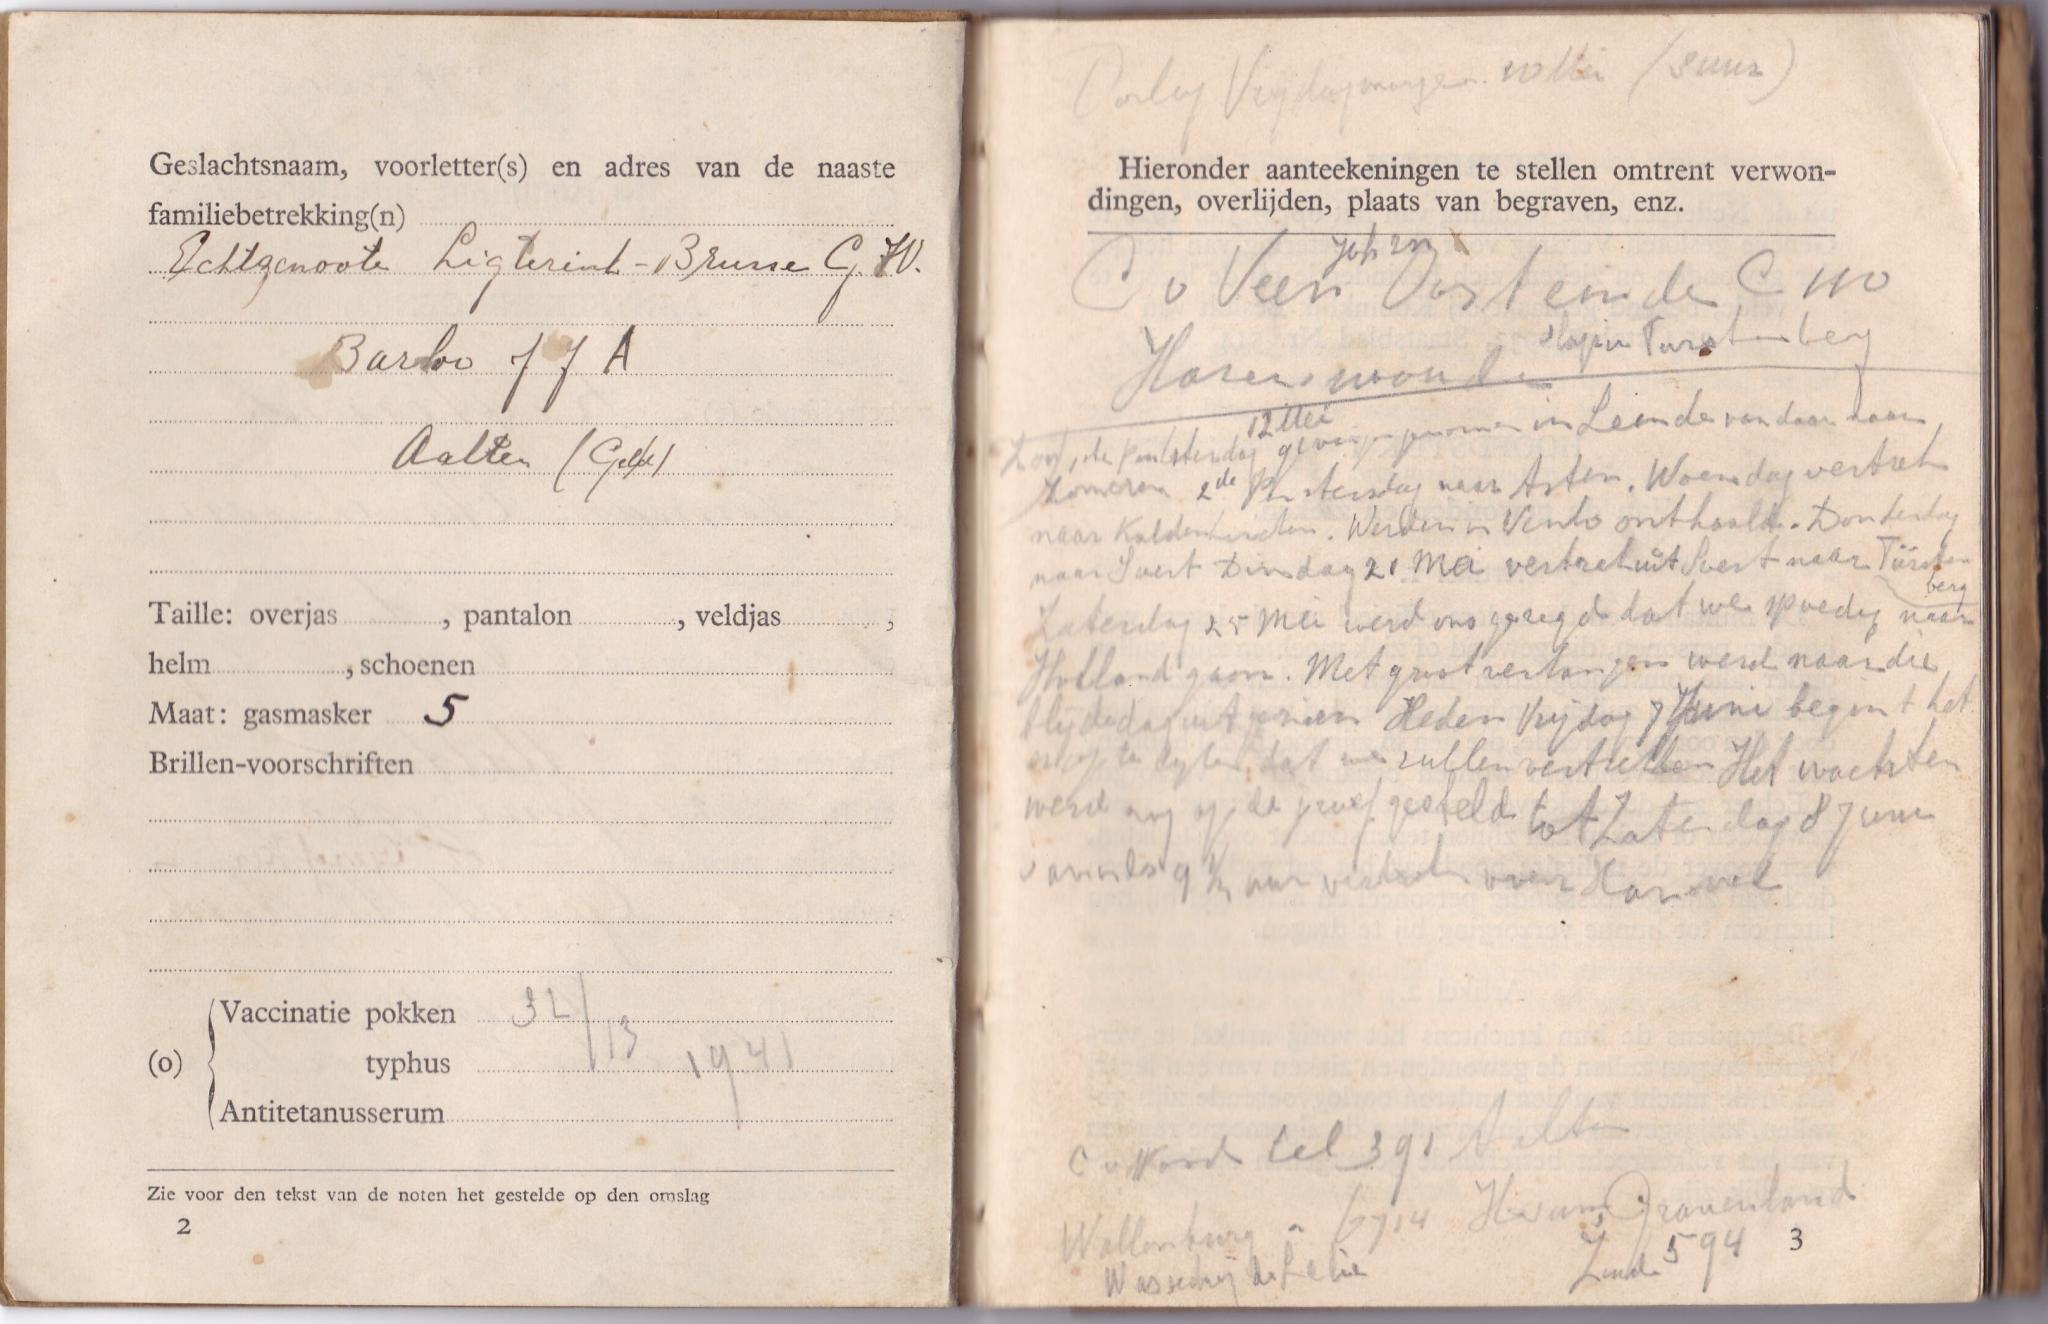 Geslachtsnaam, voorletter(s) en adres van de naaste
familiebetrekking(n)
Echtgenoote Ligterink-Brusse G. W.
Barlo 77 A
Aalten (Geld)
Taille: overjas , pantalon , veldjas ,
helm , schoenen
Maat: gasmasker 5
Brillen-voorschriften
Vaccinatie pokken 32/13
(o) typhus 1941
Antitetanusserum
Zie voor den tekst van de noten het gestelde op den omslag
2
Oorlog Vrijdagmorgen 10 Mei (3 uur)
Hieronder aanteekeningen te stellen omtrent verwon-
dingen, overlijden, plaats van begraven, enz.
C v Veen Oosteinde C 110
Hazerswoude
12 Mei
gevangen genomen in Leende van daar naar
Zomeren 2de Pinksterdag naar Asten. Woensdag vertrek
naar Kaldenkirchen. Werden in Venlo onthaald. Donderdag
naar Soest Dinsdag 21 Mei vertrek uit Soest naar Fürsten
berg
Zaterdag 25 Mei werd ons gezegd dat we spoedig naar
Holland gaan. Met groot verlangen werd naar die
blijde dag uitgezien Heden Vrijdag 7 Juni begint het
erop te lijken dat we zullen vertrekken Het wachten
werd nog op de proef gesteld tot Zaterdag 8 Juni
9 1/2 uur vertrek over
tel 391
Wallenburg
Wasscherij de Lelie
594
3